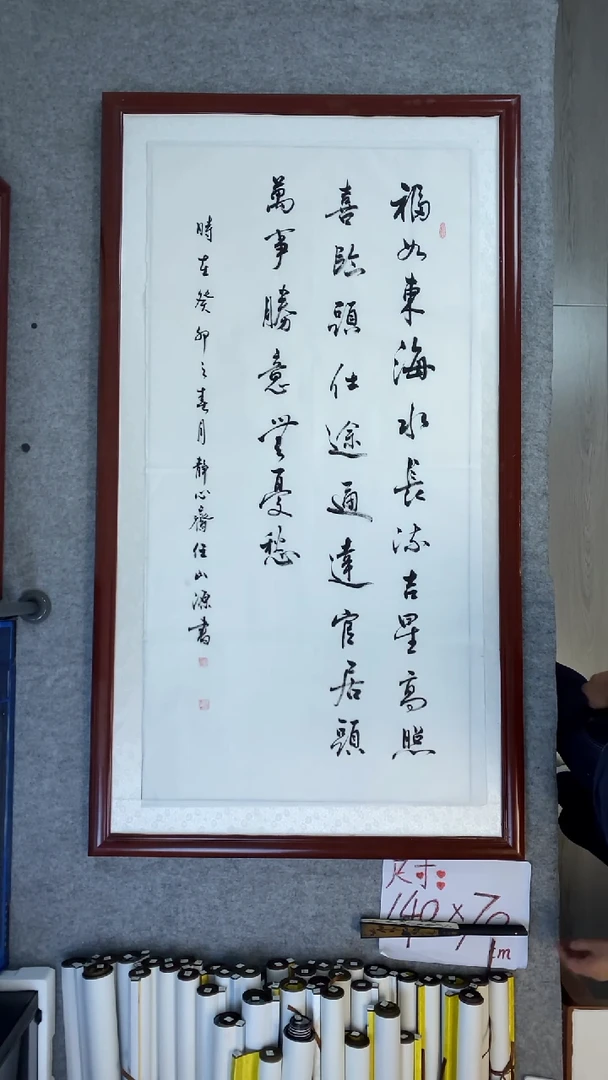 福如東海水長流吉星高照
喜臨頭仕途通達官居頭
萬事勝意無憂愁
時在癸卯之春月静心齋任山源書
尺寸:
140×70
cm